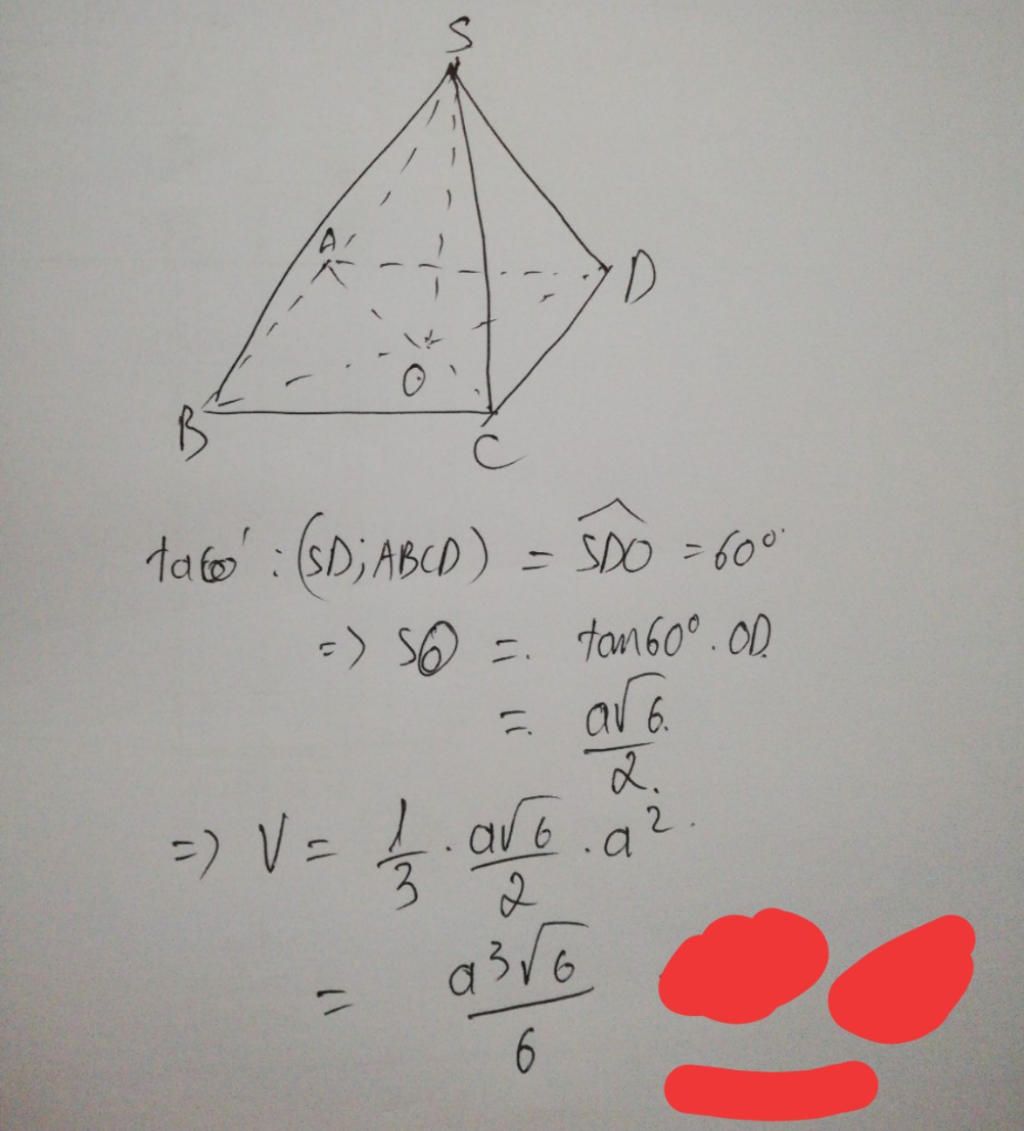 S
A
D
O
B
C
ta có : (SD;ABCD) = SDO = 60°
=> SO = tan60°.OD
= a√6/2
=> V = 1/3 . a√6/2 . a²
= a³√6/6